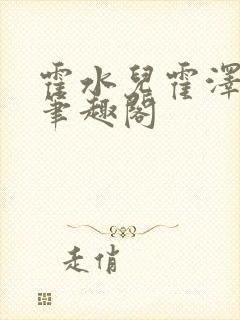 霍水兒霍澤
筆趣閣
走俏